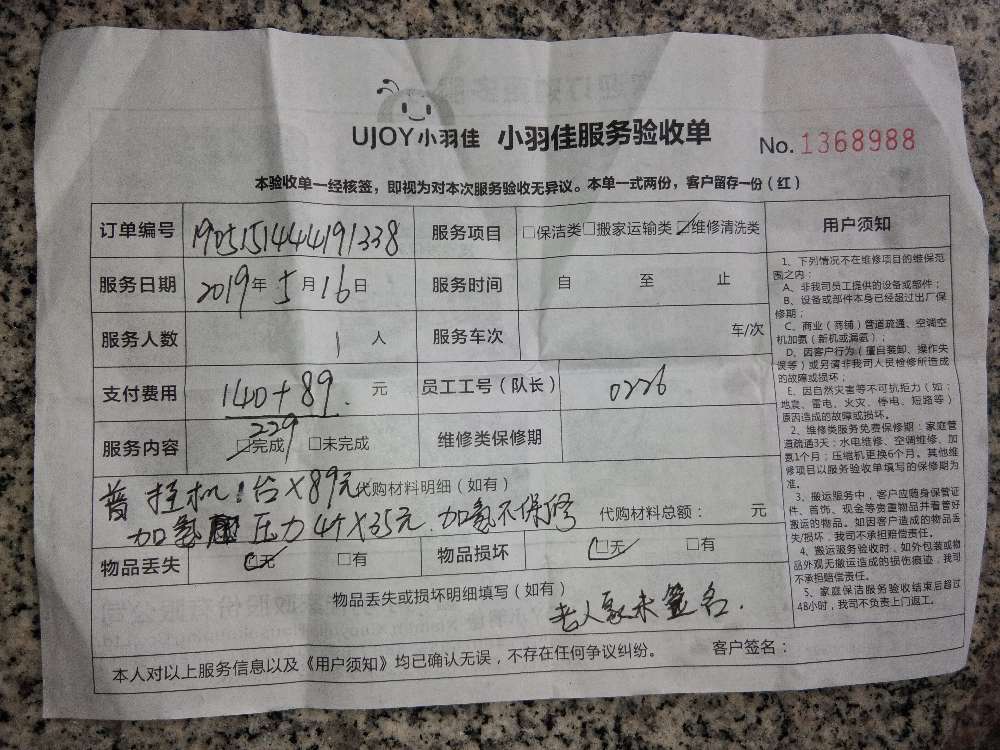 UJOY小羽佳 小羽佳服务验收单 No.1368988
本验收单一经核签，即视为对本次服务验收无异议。本单一式两份，客户留存一份（红）
订单编号 1905151444191338 服务项目 □保洁类□搬家运输类☑维修清洗类
服务日期 2019年5月16日 服务时间 自 至 止
服务人数 1人 服务车次 车/次
支付费用 140+89. 元 员工工号（队长） 0226
229
服务内容 ☑完成 □未完成 维修类保修期
普挂机1台X89元代购材料明细（如有）
加氢 压力4个X35元.加氢不保修 代购材料总额： 元
物品丢失 ☑无 □有 物品损坏 ☑无 □有
物品丢失或损坏明细填写（如有）
老人家未签名.
本人对以上服务信息以及《用户须知》均已确认无误，不存在任何争议纠纷。 客户签名：
用户须知
1、下列情况不在维修项目的维保范
围之内：
A、非我司员工提供的设备或部件；
B、设备或部件本身已经超过出厂保
修期；
C、商业（商铺）管道疏通、空调空
机加氨（新机或漏氨）；
D、因客户行为（擅自装卸、操作失
误等）或另请非我司人员检修所造成
的故障或损坏；
E、因自然灾害等不可抗拒力（如：
地震、雷电、火灾、停电、短路等）
原因造成的故障或损坏。
2、维修类服务免费保修期：家庭管
道疏通3天；水电维修、空调维修、加
氨1个月；压缩机更换6个月。其他维
修项目以服务验收单填写的保修期为
准。
3、搬运服务中，客户应随身保管证
件、首饰、现金等贵重物品并看管好
搬运的物品。如因客户造成的物品丢
失/损坏，我司不承担赔偿责任。
4、搬运服务验收时，如外包装或物
品外观无搬运造成的损伤痕迹，我司
不承担赔偿责任。
5、家庭保洁服务验收结束后超过
48小时，我司不负责上门返工。